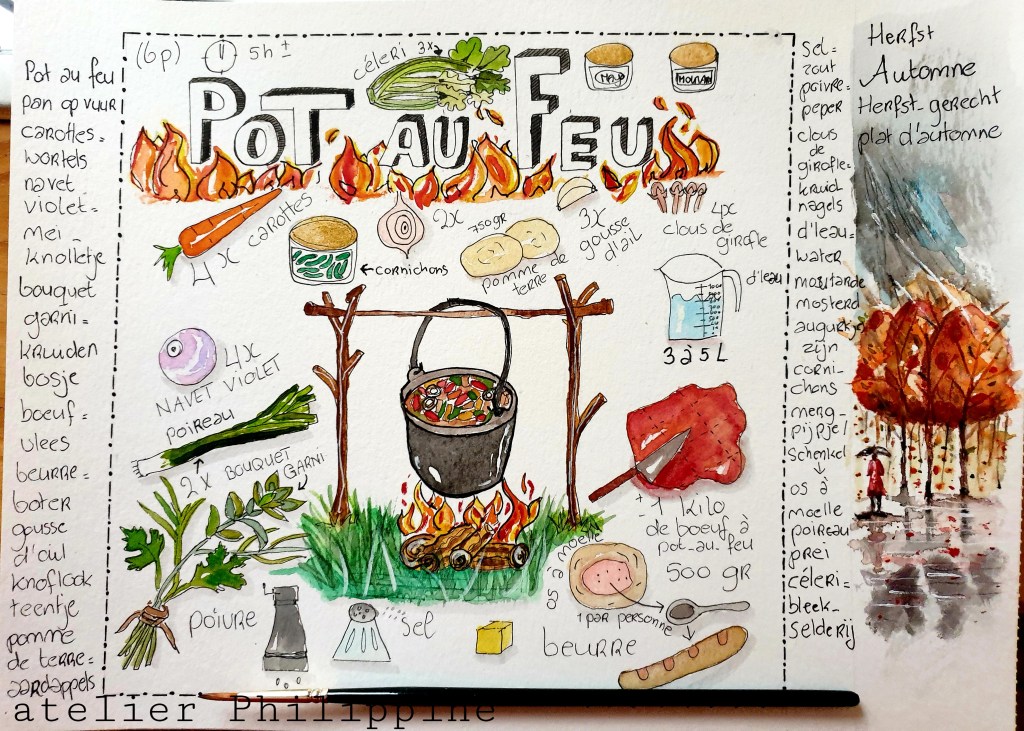 Pot au feu
pan op vuur
carottes =
wortels
navet
violet =
mei -
knolletje
bouquet
garni =
kruiden
bosje
bœuf =
vlees
beurre =
boter
gousse
d'ail
knoflook
teentje
pomme
de terre =
aardappels
(6p) 5h ±
céleri 3x
POT AU FEU
MAYO
MOUTARDE
4x carottes
← cornichons
2x
750gr
pomme de
terre
3x
gousse
d'ail
4x
clous de
girofle
d'eau
3 à 5 L
4x
NAVET VIOLET
poireau
2x
BOUQUET
GARNI
± 1 kilo
de bœuf à
pot-au-feu
500 gr
os à moelle
1 par personne
poivre
sel
beurre
sel =
zout
poivre =
peper
clous
de
girofle =
kruid
nagels
d'eau =
water
moutarde
mosterd
augurkje
zijn
corni -
chons
merg -
pijpje/
schenkel
↓
os à
moelle
poireau
prei
céleri =
bleek -
selderij
Herfst
Automne
Herfst-gerecht
plat d'automne
atelier Philippine